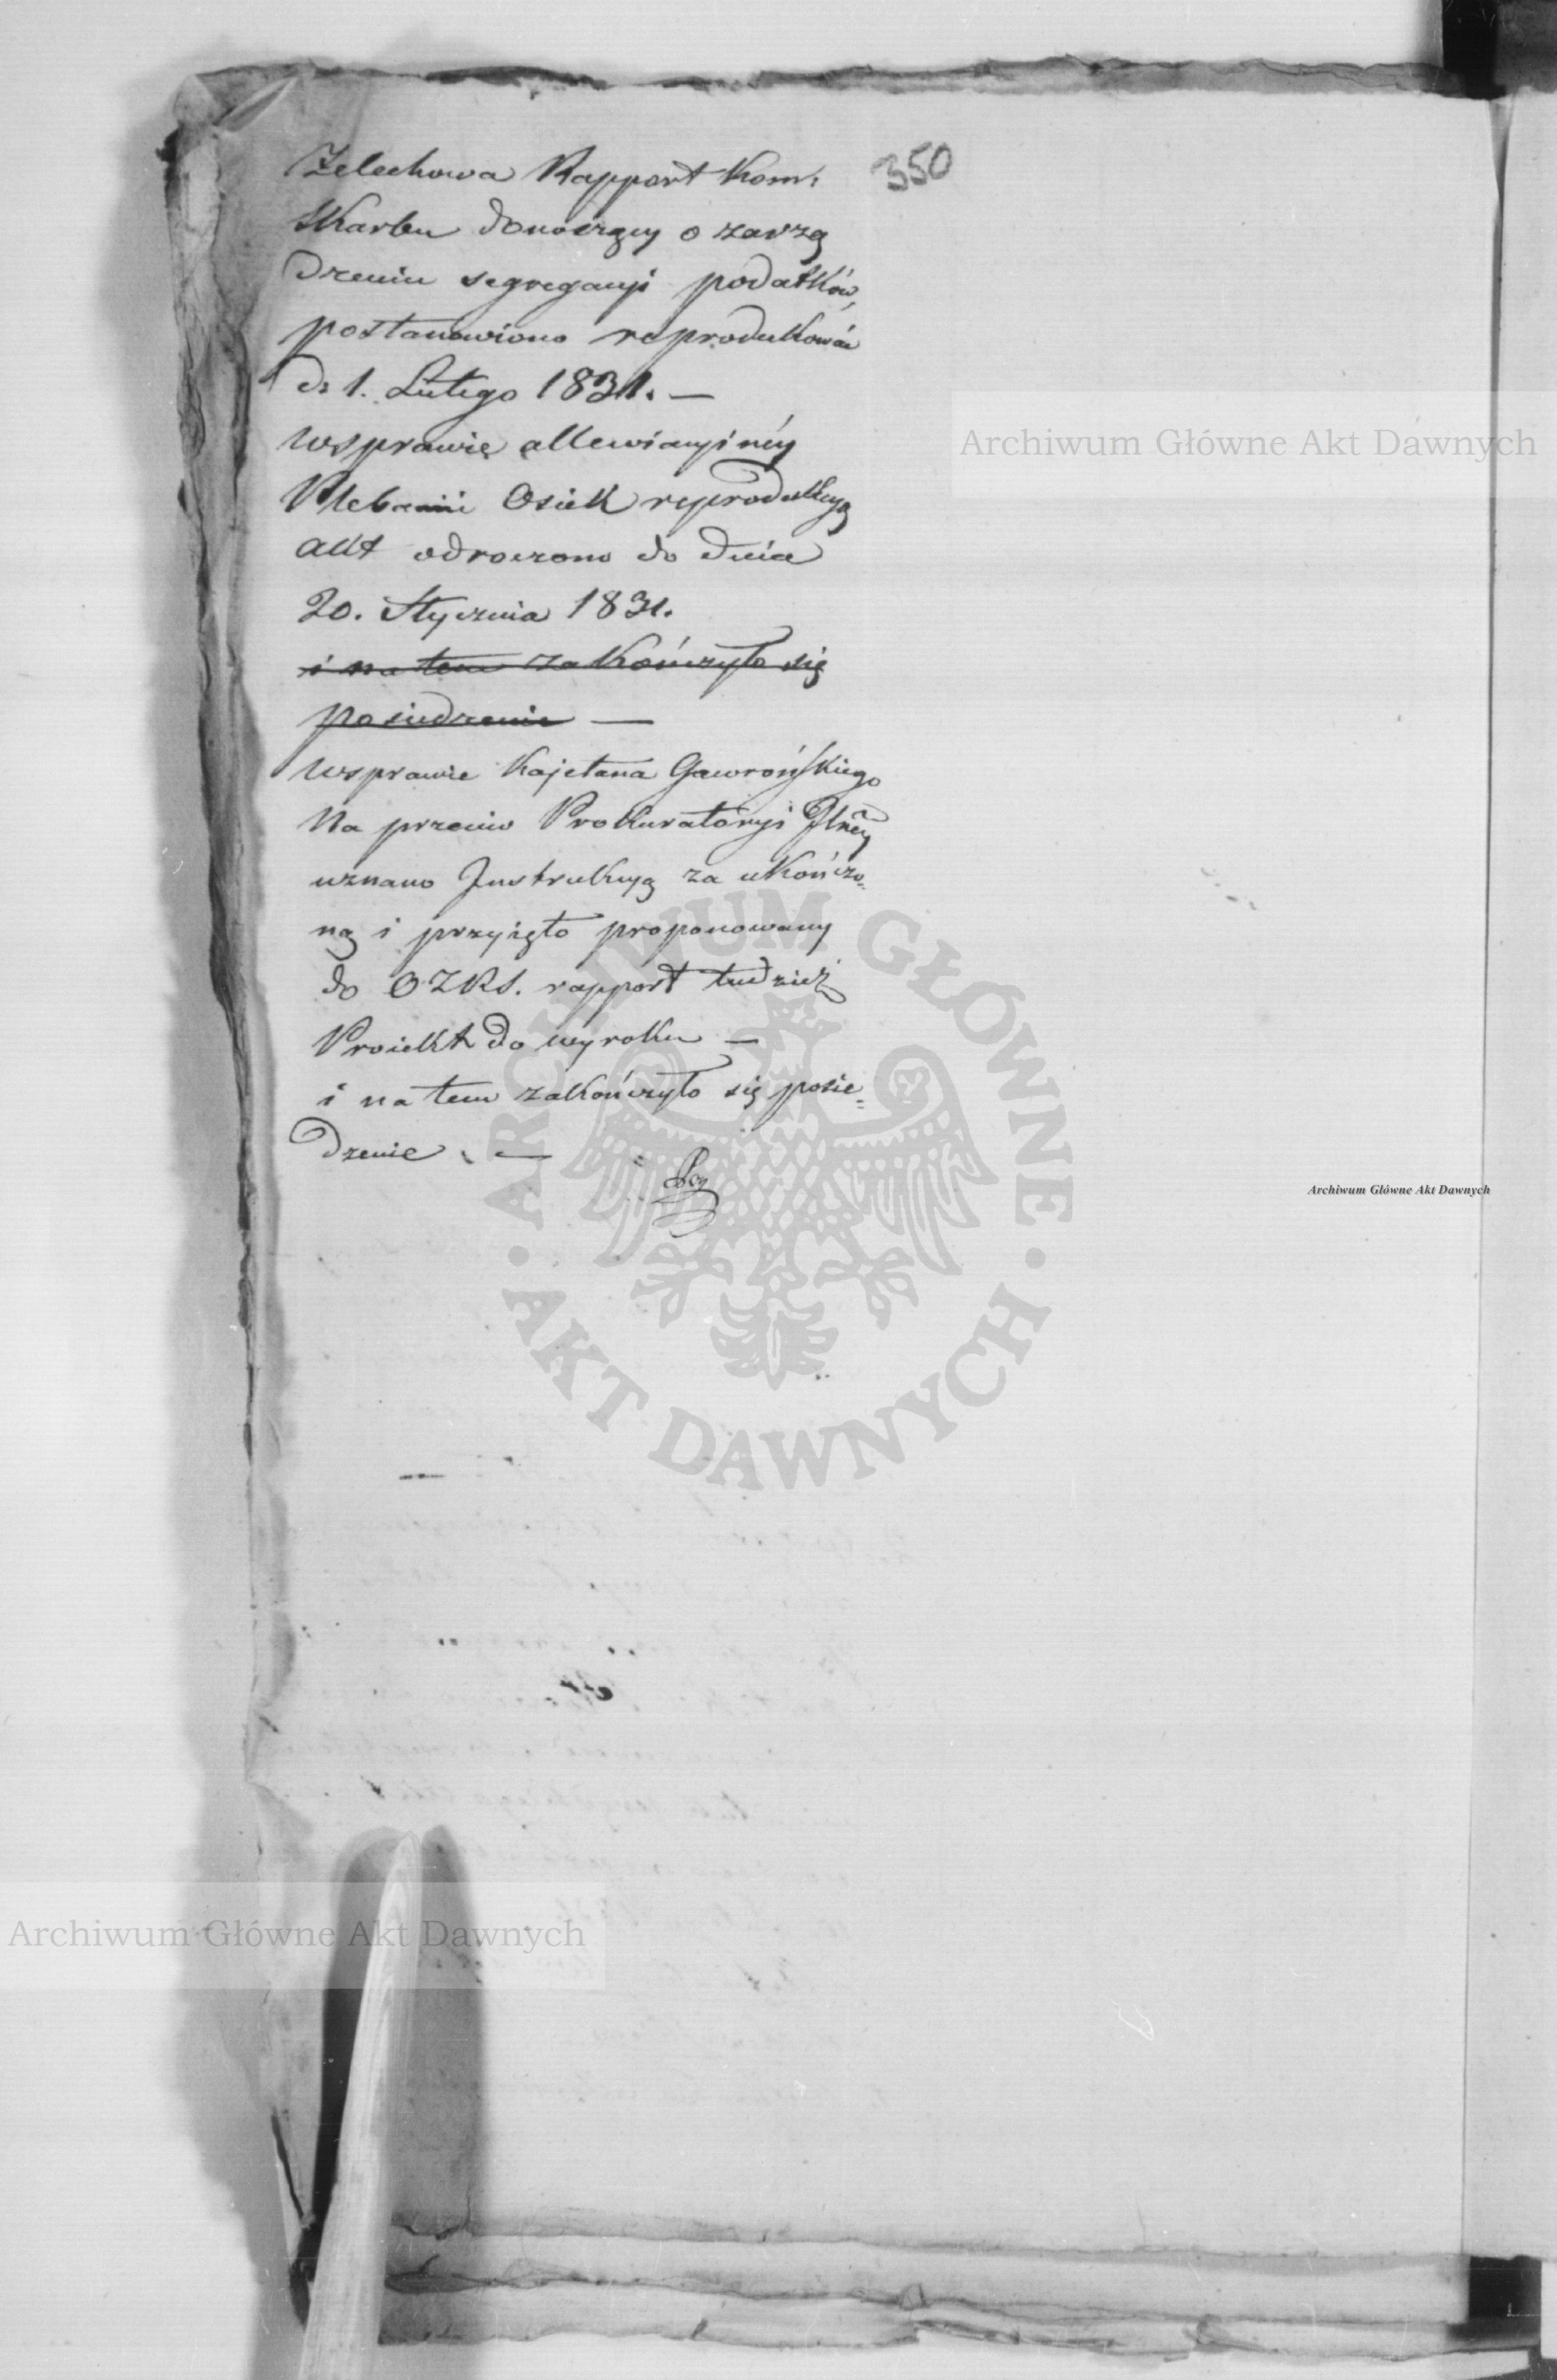 350
Zelechowa Rapport Kom:
Skarbu donoszący o zarzą
dzeniu segregacyi podatków,
postanowiono reprodukować
d: 1. Lutego 1831. —
W sprawie allewiacyinéy
Plebanii Osiek reprodukcyą
akt odroczono do dnia
20. Stycznia 1831.
i na tem zakończyło się
posiedzenie —
W sprawie Kajetana Gawrońskiego
Na przeciw Prokuratoryi
uznano Instrukcyą za ukończo=
ną i przyięto proponowany
do OZRS. rapport tudzież
Proiekt do wyroku —
i na tem zakończyło się posie=
dzenie. —
Archiwum Główne Akt Dawnych
Archiwum Główne Akt Dawnych
ARCHIWUM GŁÓWNE AKT DAWNYCH
Archiwum Główne Akt Dawnych